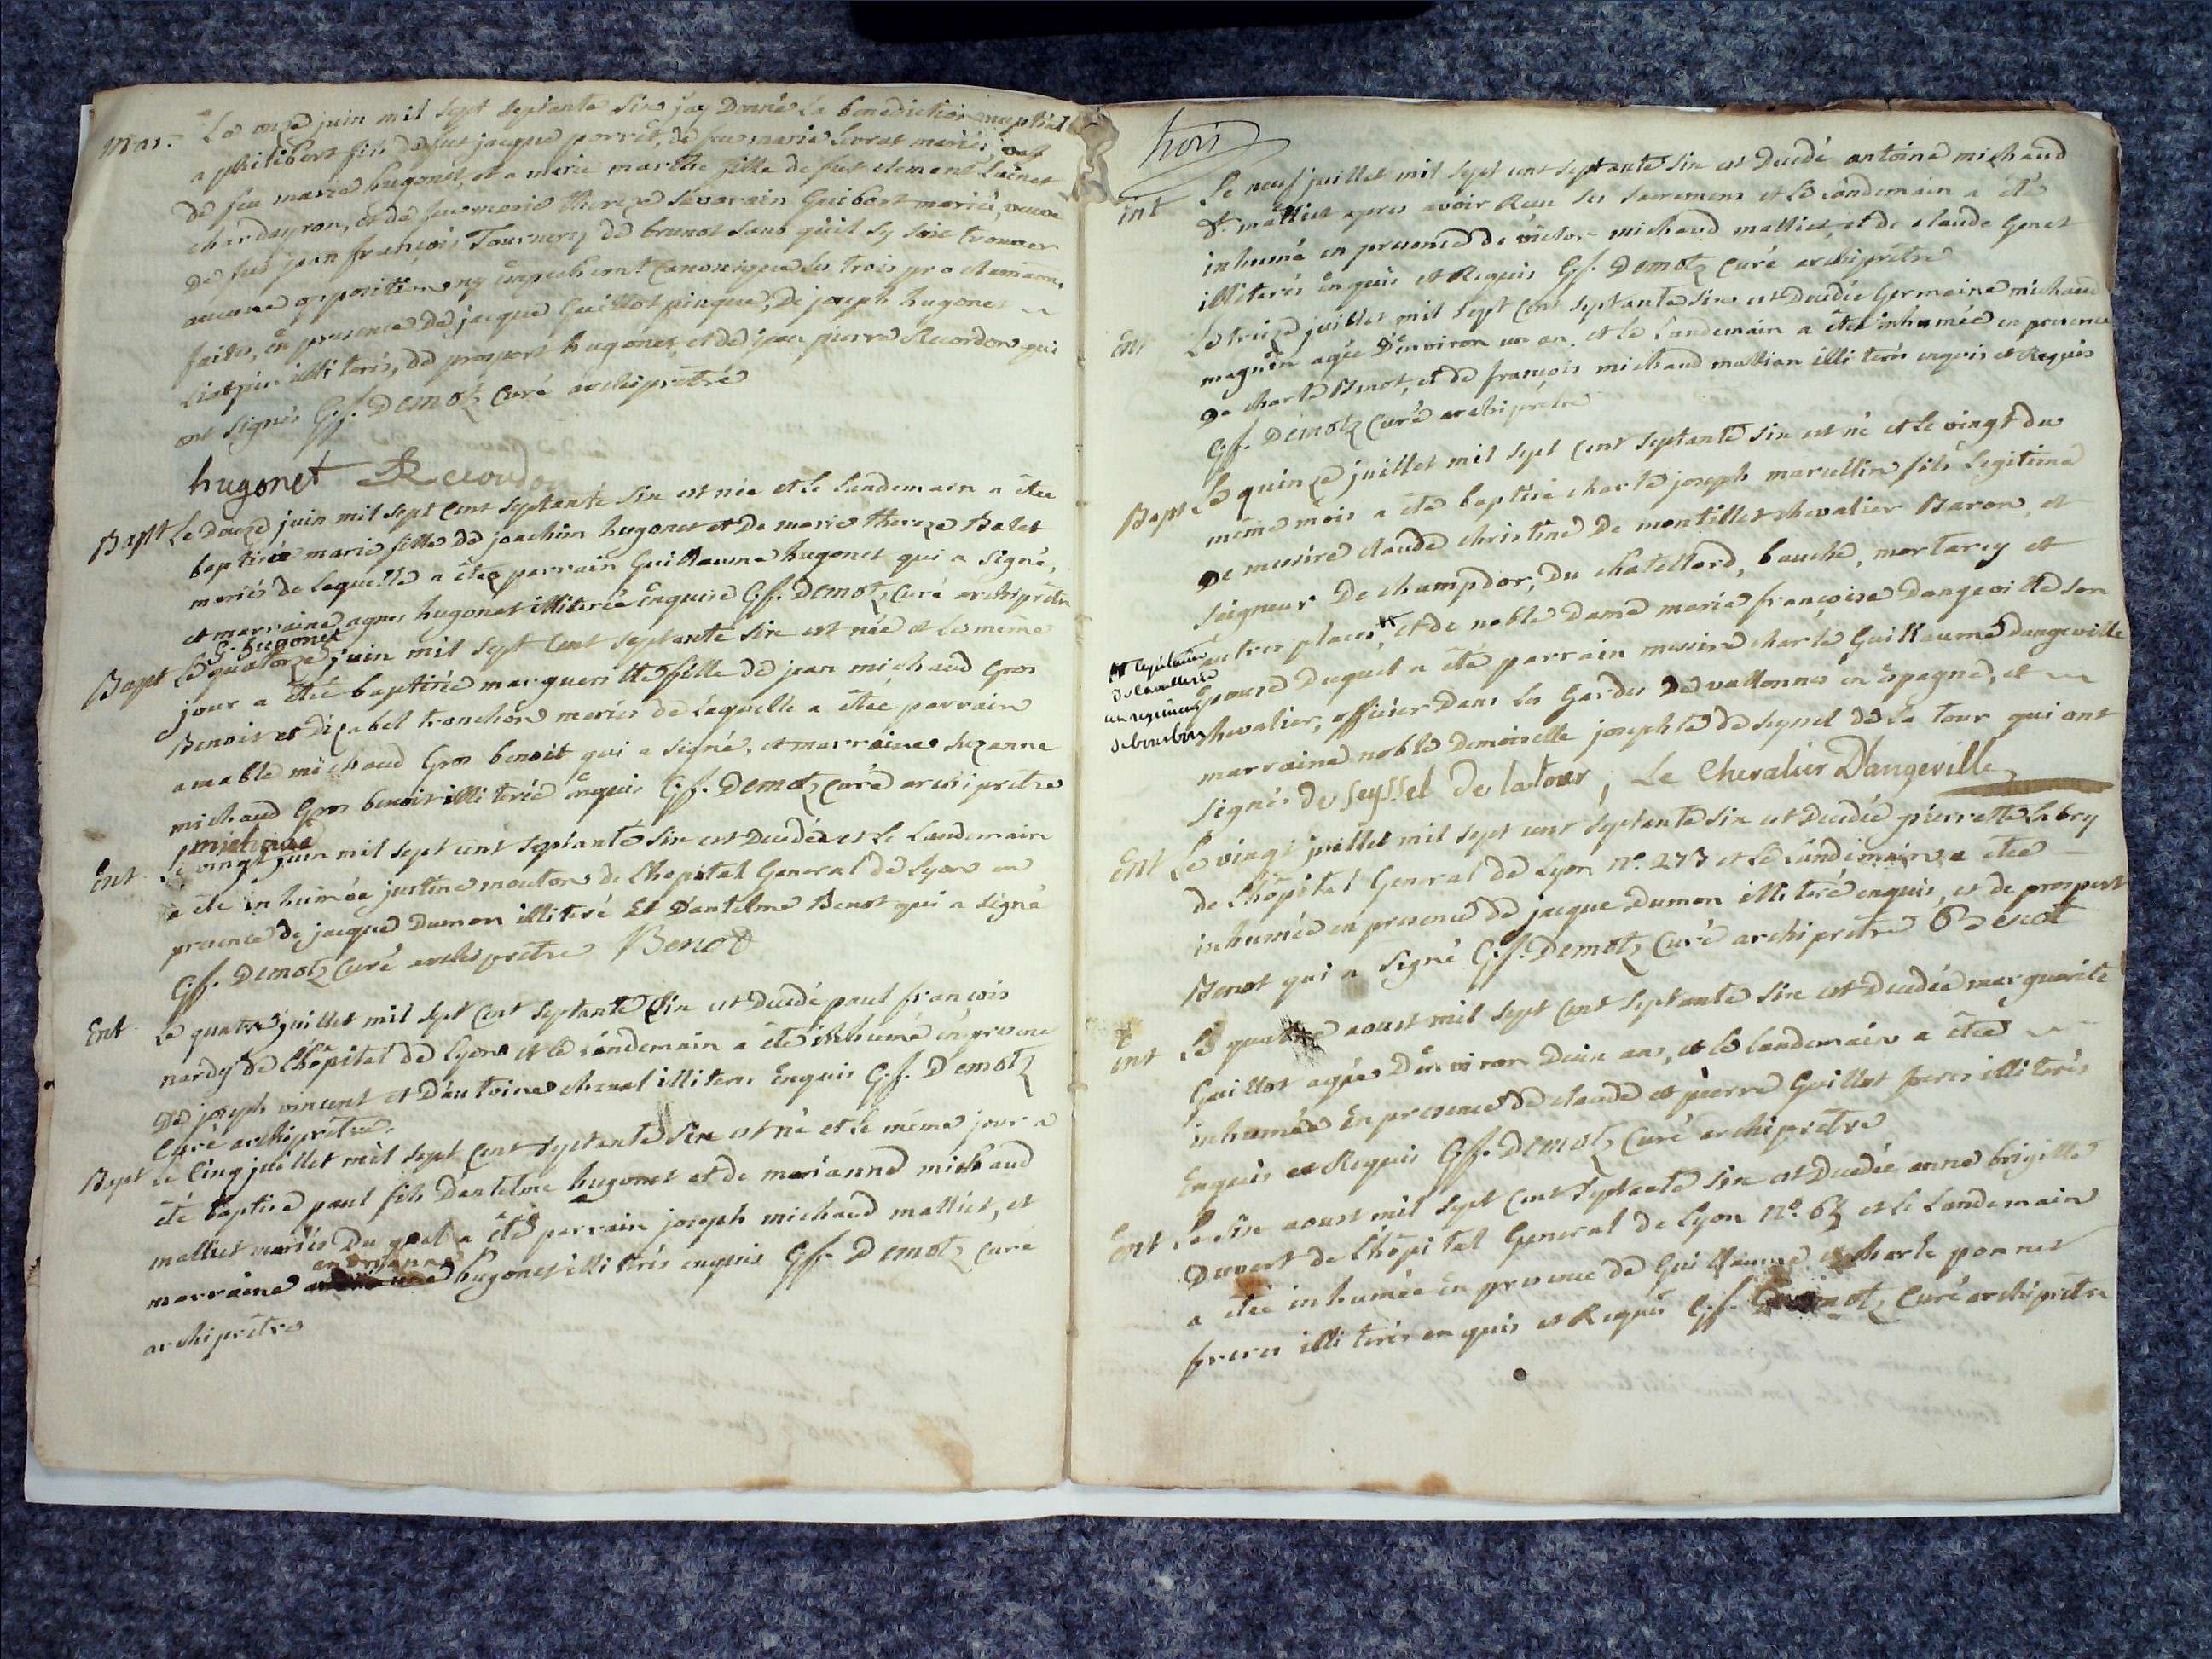 mar. Le onze juin mil sept septante six jay Donné La benediction nuptial
a philibert fils de fut jacque perret, de feue marie mariés
de feu marie hugonet, et a marie marthe fille de fut clement
chardayron, et de feue marie thereze Savarain Guibert mariés, veuve
de fut jean françois Tournery de brenot sans qu'il sy soit trouver
aucune opposition ny empechemt Canonique les trois proclamaons
faites, en presence de jacque Guillot pinque, de joseph hugonet
illiterés, de prosport hugonet, et de jean pierre Recordon qui
ont signés G.f. Demotz Curé archiprêtre
hugonet Recordon
Bapt Le douze juin mil sept cent septante six est née et le landemain a étee
baptisée marie fille de joachim hugonet et De marie thereze Balet
mariés de laquelle a étee parrain Guillaume hugonet qui a signé,
et marraine agnes hugonet illiterée Enquise G.f. Demotz Curé archiprêtre
G. hugonet
Bapt Le quatorze juin mil sept cent septante six est née et Le même
jour a étee baptisée margueritte fille de jean michaud Gros
Benoit et dizabel tronchon mariés de Laquelle a étee parrain
amable michaud Gros benoit qui a signé, et marraine suzanne
michaud Gros benoit illiterée enquis G.f. Demotz curé archiprêtre
michaud
Ent. Le vingt juin mil sept cent septante six est Decedée et Le Landemain
a été inhumée justine mouton de L'hopital General de Lyon en
presence de jacque Dumon illiteré Et D'antelme Benot qui a signé
G.f. Demotz Curé archiprêtre Benot
Ent. Le quatre juillet mil sept cent septante Six est Decedé paul françois
nardy de L'hôpital de Lyon et le landemain a été inhumé en presence
De joseph vincent et D'antoine chenal illiteres Enquis G.f. Demotz
Curé archiprêtre
Bapt Le Cinq juillet mil sept cent septante Six est né et le même jour a
été baptisé paul fils D'antelme hugonet et de marianne michaud
malliet mariés Du quel a été parrain joseph michaud malliet, et
andrianne
marraine hugonet illiterés enquis G.f. Demotz Curé
archiprêtre
trois
int Le neuf juillet mil sept cent septante Six est Decedé antoine michaud
dt malliet apres avoir Recu ses sacremens et Le landemain a été
inhumé en presence de victor michaud malliet, et de claude Genet
illiterés enquis et Requis G.f. Demotz Curé archiprêtre
Ent Le treize juillet mil sept cent septante six est Decedée Germaine michaud
magnin agée D'environ un an. et le landemain a étee inhumée en presence
De charle Benot, et de françois michaud mallian illiterés enquis et Requis
G.f. Demotz Curé archiprêtre
Bapt Le quinze juillet mil sept cent septante six est né et le vingt du
même mois a été baptisé charle joseph marcellin fils Legitime
De messire claude christine De montillet chevalier Baron, et
seigneur De champdor, Du chatellard, bauche, mortarey et
autres places, et de noble Dame marie françoise Dangeville son
capitaine
de cavallerie
au regiment
de bourbon
Epouse Duquel a été parrain messire charle Guillaume dangeville
chevalier, officier Dans les Gardes De vallonnes en Espagne, et
marraine noble Demoiselle josephte de seyssel de La tour qui ont
signés de seyssel de la tour, Le Chevalier D'angeville
Ent Le vingt juillet mil sept cent septante six est Decedée pierrette Labry
de L'hôpital General de Lyon no. 273 et Le Landemain a étee
inhumée en presence de jacque Dumon illiteré enquis, et de prosport
Benot qui a signé G.f. Demotz Curé archiprêtre P Benot
int Le quatre aoust mil sept Cent Septante six est Decedée marguerite
Guillot agée D'environ Deux ans, et le landemain a étee
inhumée En presence de claude et pierre Guillot freres illiterés
Enquis et Requis G.f. Demotz Curé archiprêtre
Ent Le six aoust mil sept Cent Septante Six est Decedée anne brigitte
Duvert de L'hôpital General de Lyon no. et le Landemain
a étee inhumée en presence de Guillaume et charle ponnet
freres illiterés enquis et Requis G.f. Demotz Curé archiprêtre